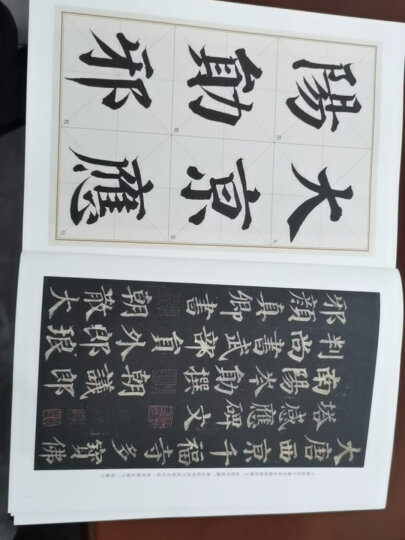 大京應
陽勛邪
大唐西京千福寺多寶佛
塔感應碑文
南陽岑勛撰 朝議郎
判尚書武部員外郎琅
邪顏真卿書 朝散大